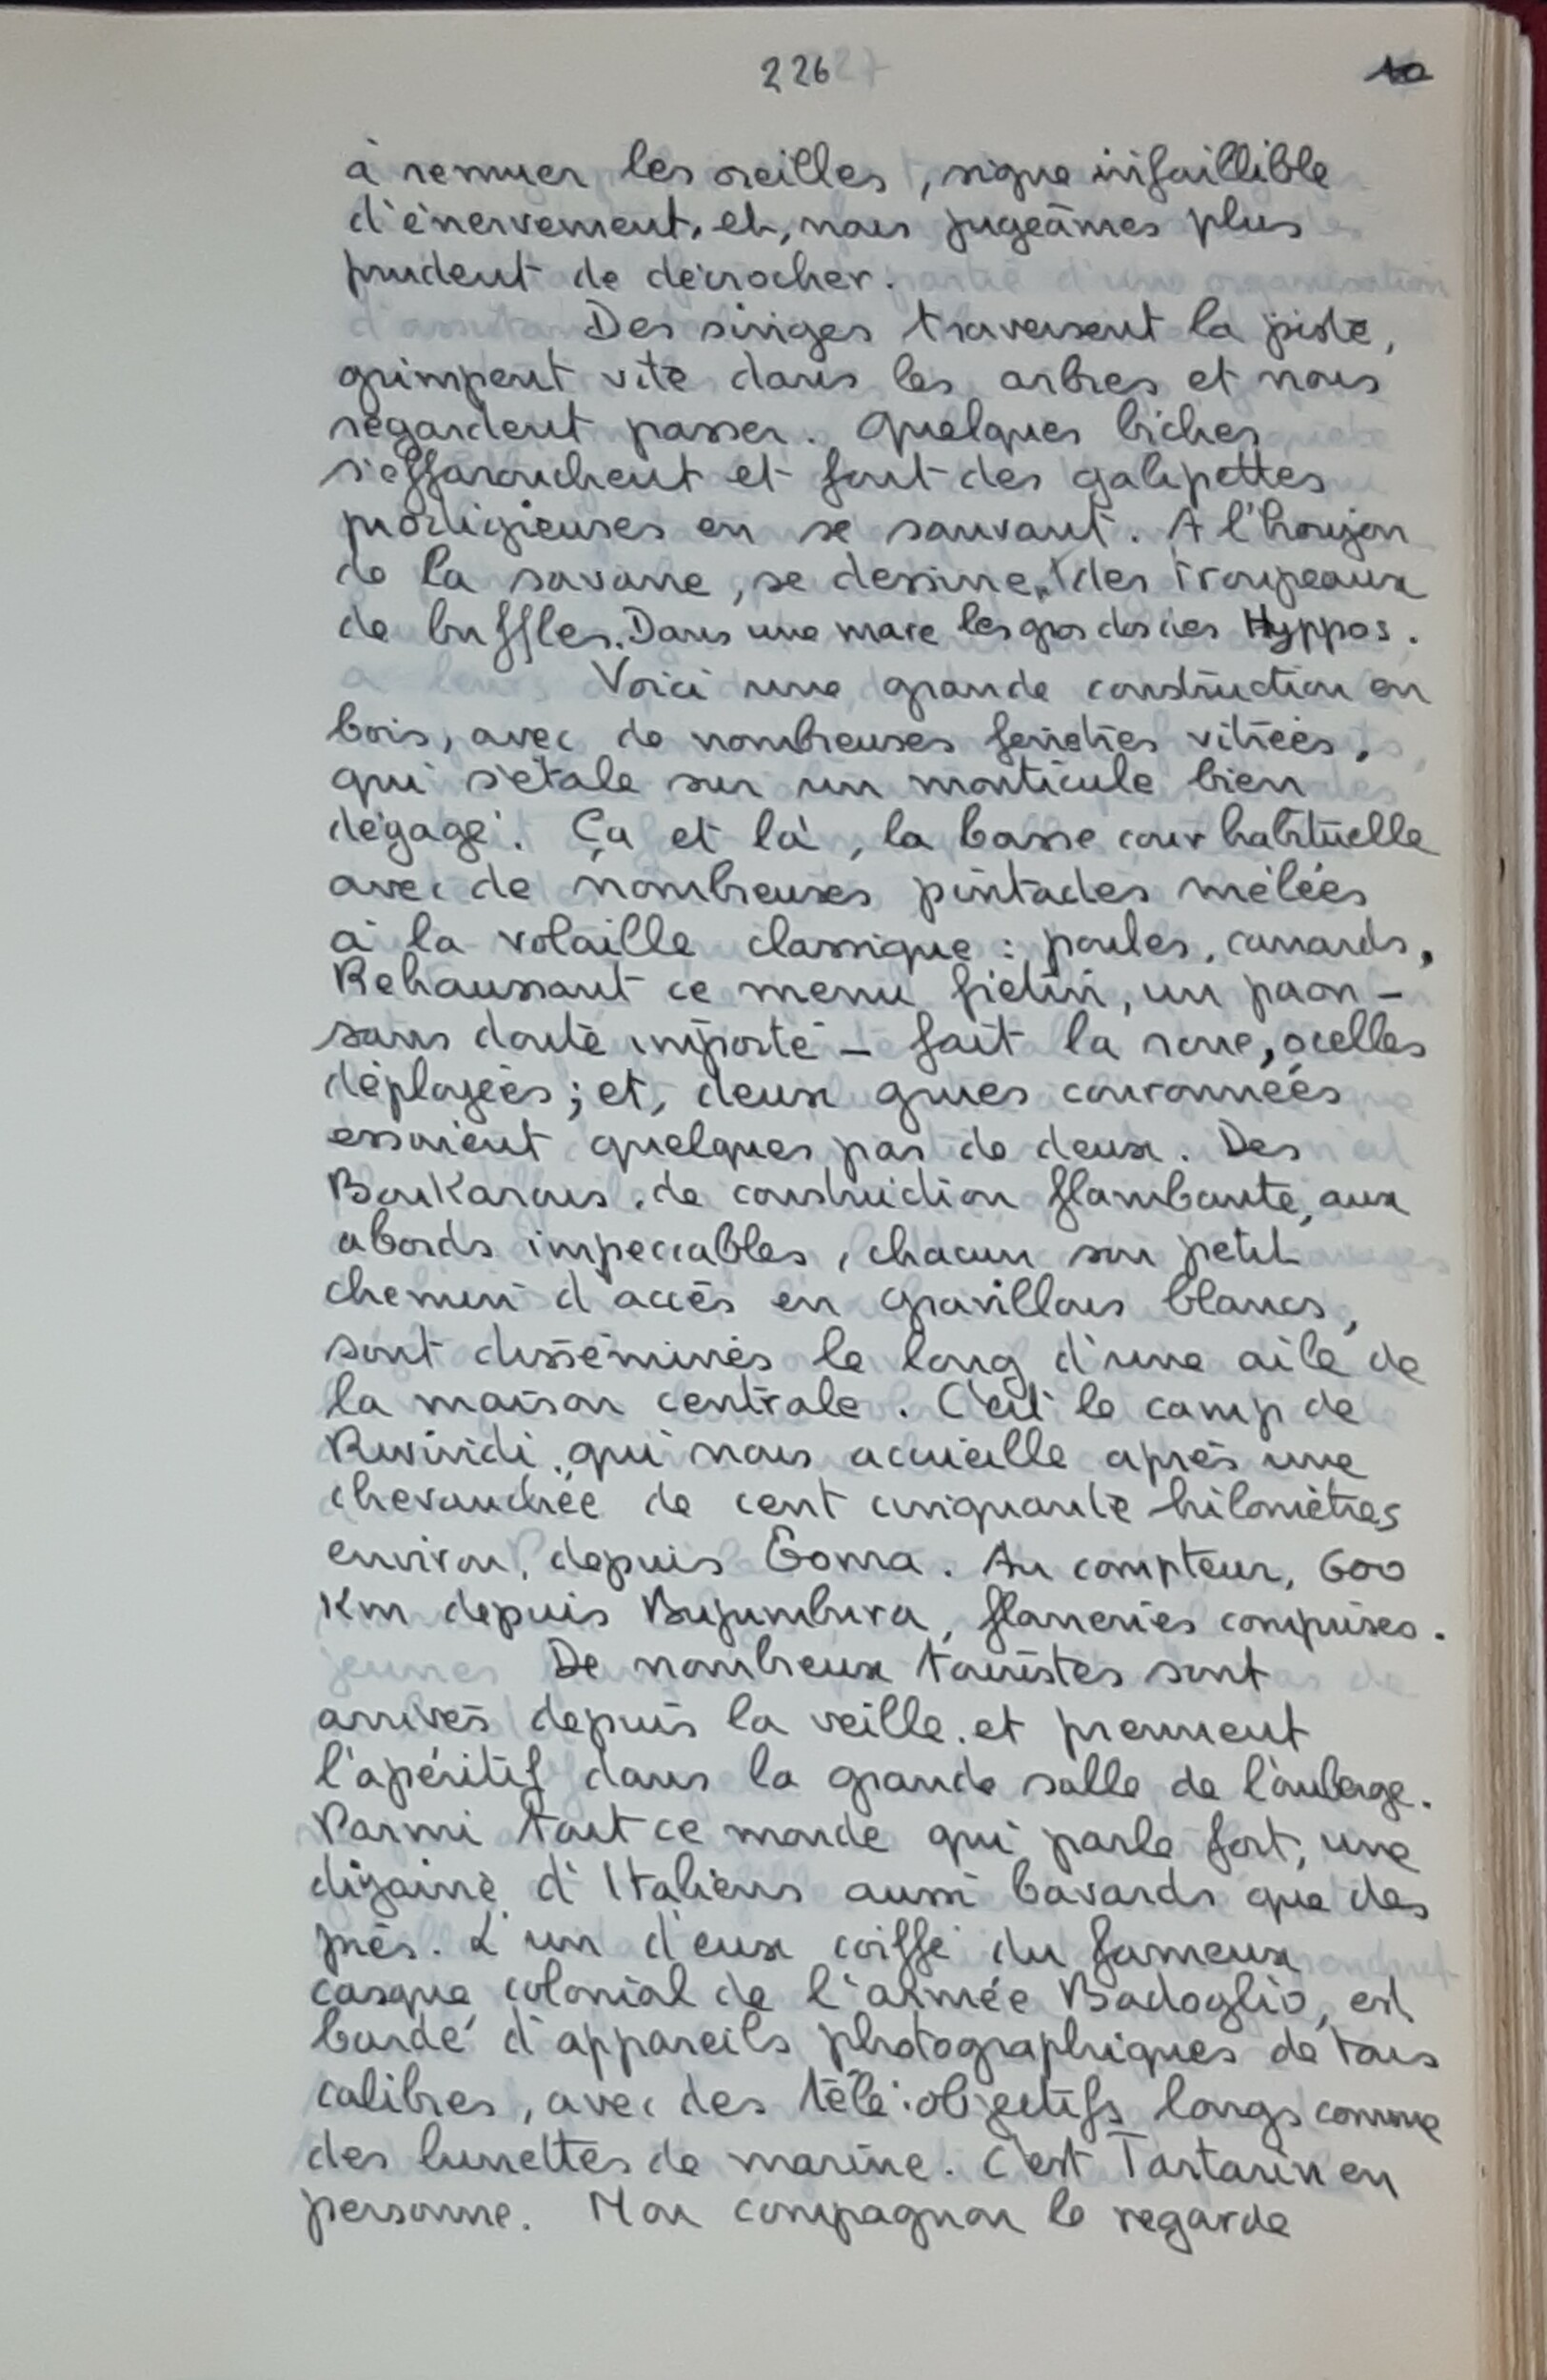 226
10
à remuer les oreilles, signe infaillible
d'énervement, et, nous jugeâmes plus
prudent de décrocher.
Des singes traversent la piste,
grimpent vite dans les arbres et nous
regardent passer. Quelques biches
s'effarouchent et font des galipettes
prodigieuses en se sauvant. A l'horizon
de la savane, se dessinent des troupeaux
de buffles. Dans une mare les gros dos des Hyppos.
Voici une grande construction en
bois, avec de nombreuses fenêtres vitrées,
qui s'étale sur un monticule bien
dégagé. Ça et là, la basse cour habituelle
avec de nombreuses pintades mêlées
à la volaille classique : poules, canards,
Rehaussant ce menu fretin, un paon -
sans doute importé - fait la roue, ocelles
déployées ; et, deux grues couronnées
essaient quelques pas de deux. Des
Boukarous, de construction flambante, aux
abords impeccables, chacun son petit
chemin d'accès en gravillons blancs,
sont disséminés le long d'une aile de
la maison centrale. C'est le camp de
Rwindi, qui nous accueille après une
chevauchée de cent cinquante kilomètres
environ, depuis Goma. Au compteur, 600
Km depuis Bujumbura, flaneries comprises.
De nombreux touristes sont
arrivés depuis la veille, et prennent
l'apéritif dans la grande salle de l'auberge.
Parmi tout ce monde qui parle fort, une
dizaine d'Italiens aussi bavards que des
pies. L'un d'eux coiffé du fameux
casque colonial de l'armée Badoglio, est
bardé d'appareils photographiques de tous
calibres, avec des télé-objectifs longs comme
des lunettes de marine. C'est Tartarin en
personne. Mon compagnon le regarde